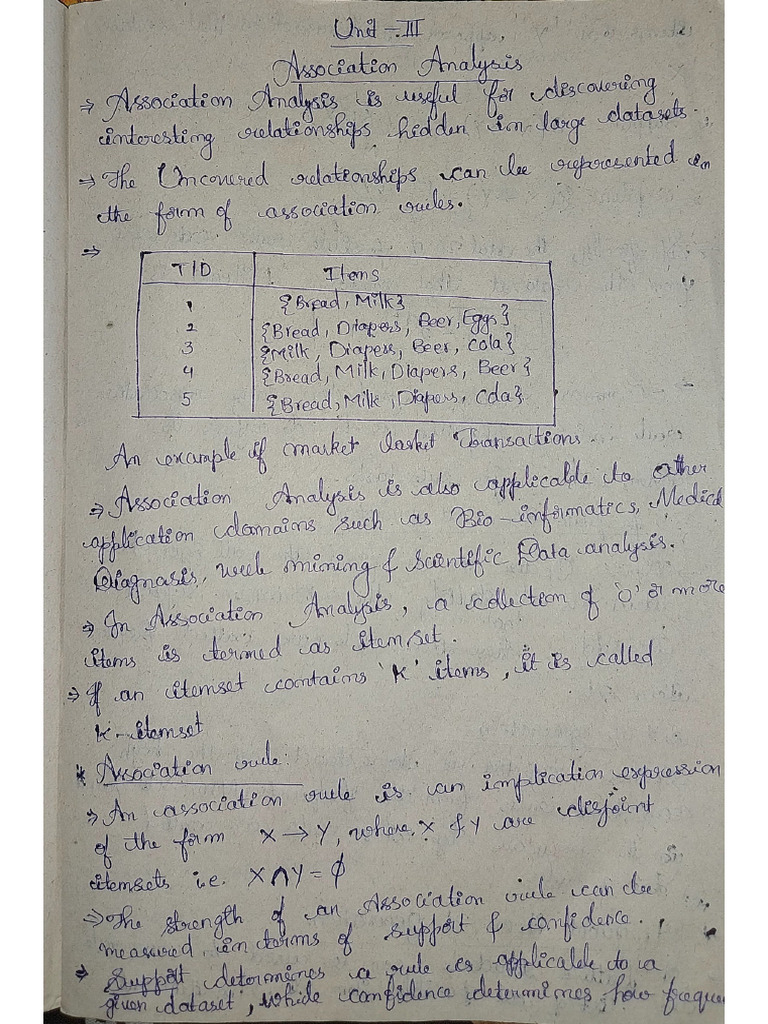 Unit - III
Association Analysis
⇒ Association Analysis is useful for discovering
interesting relationships hidden in large datasets.
⇒ The Uncovered relationships can be represented in
the form of association rules.
⇒
TID Items
1 {Bread, Milk}
2 {Bread, Diapers, Beer, Eggs}
3 {Milk, Diapers, Beer, Cola}
4 {Bread, Milk, Diapers, Beer}
5 {Bread, Milk, Diapers, Cola}
An example of market basket Transactions.
⇒ Association Analysis is also applicable to other
application domains such as Bio-informatics, Medical
Diagnasis, web mining & Scientific Data analysis.
⇒ In Association Analysis, a collection of '0' or more
items is termed as itemset.
⇒ If an itemset contains 'K' items, it is called
K-itemset
* Association rule:
⇒ An association rule is an implication expression
of the form X → Y, where X & Y are disjoint
itemsets i.e. X ∩ Y = ϕ
⇒ The strength of an Association rule can be
measured in terms of support & confidence.
⇒ Support determines a rule is applicable to a
given dataset, while confidence determines how freque